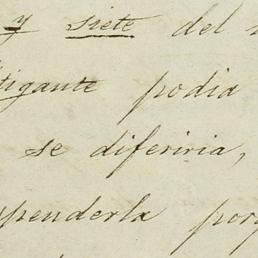 y siete del
tigante podia
se diferiria,
penderla por